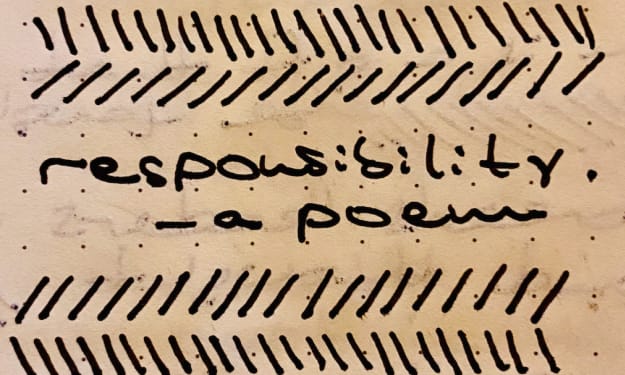 responsibility.
– a poem